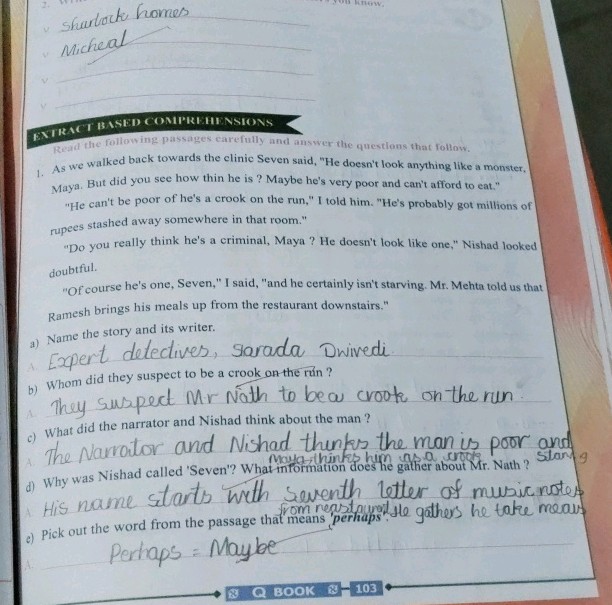 know.
Sharlock homes
Micheal
EXTRACT BASED COMPREHENSIONS
Read the following passages carefully and answer the questions that follow.
1. As we walked back towards the clinic Seven said, "He doesn't look anything like a monster,
Maya. But did you see how thin he is ? Maybe he's very poor and can't afford to eat."
"He can't be poor of he's a crook on the run," I told him. "He's probably got millions of
rupees stashed away somewhere in that room."
"Do you really think he's a criminal, Maya ? He doesn't look like one," Nishad looked
doubtful.
"Of course he's one, Seven," I said, "and he certainly isn't starving. Mr. Mehta told us that
Ramesh brings his meals up from the restaurant downstairs."
a) Name the story and its writer.
A. Expert detectives, Sarada Dwivedi.
b) Whom did they suspect to be a crook on the run ?
A. They suspect Mr Nath to be a crook on the run.
c) What did the narrator and Nishad think about the man ?
A. The Narrator and Nishad thinks the man is poor and
Maya thinks him as a crook
d) Why was Nishad called 'Seven'? What information does he gather about Mr. Nath ?
A. His name starts with Seventh letter of music notes
from He gathers he take meals
e) Pick out the word from the passage that means 'perhaps'.
A. Perhaps = Maybe
Q BOOK 103